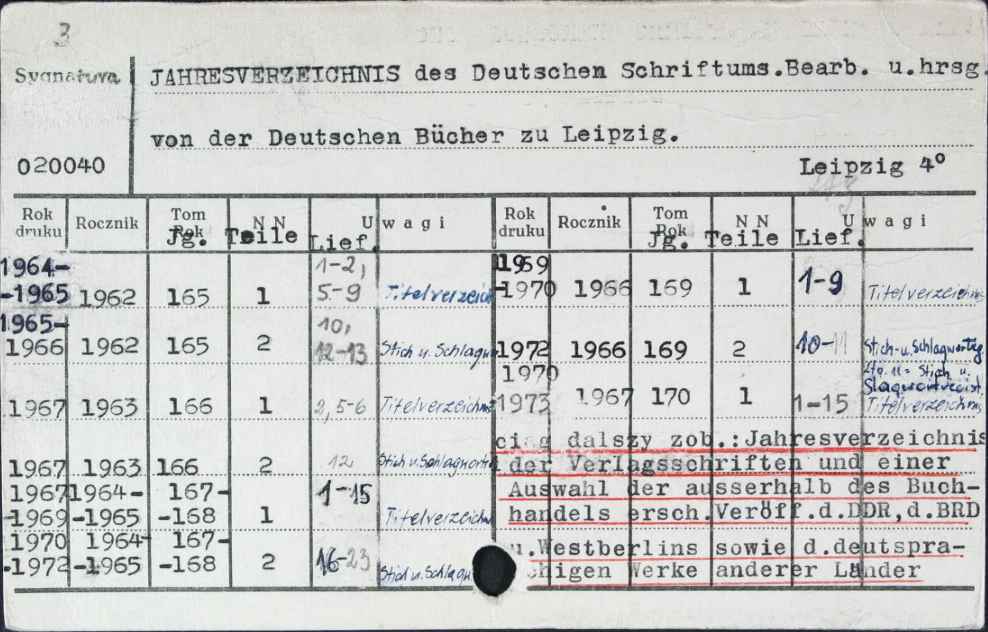 3
Sygnatura
JAHRESVERZEICHNIS des Deutschen Schriftums.Bearb. u.hrsg.
von der Deutschen Bücher zu Leipzig.
020040
Leipzig 4°
Rok druku Rocznik Tom Rok Jg. N N Teile U w a g i Lief. Rok druku Rocznik Tom Rok Jg. N N Teile U w a g i Lief.
1964-
-1965 1962 165 1 1-2, 5-9 Titelverzeich
1965-
1966 1962 165 2 10, 12-13 Stich u. Schlagw
1967 1963 166 1 2,5-6 Titelverzeichnis
1967 1963 166 2 12 Stich u. Schlagwort
1967 1964- 167-
-1969 -1965 -168 1 1-15 Titelverzeichn
1970 1964- 167-
-1972 -1965 -168 2 16-23 Stich u. Schlagw
1969
-1970 1966 169 1 1-9 Titelverzeichnis
1972 1966 169 2 10-11 Stich-u. Schlagwort
11= Stich u.
1970
-1973 1967 170 1 1-15 Titelverzeichnis
ciąg dalszy zob.:Jahresverzeichnis
der Verlagsschriften und einer
Auswahl der ausserhalb des Buch-
handels ersch.Veröff.d.DDR,d.BRD
u.Westberlins sowie d.deutspra-
chigen Werke anderer Länder